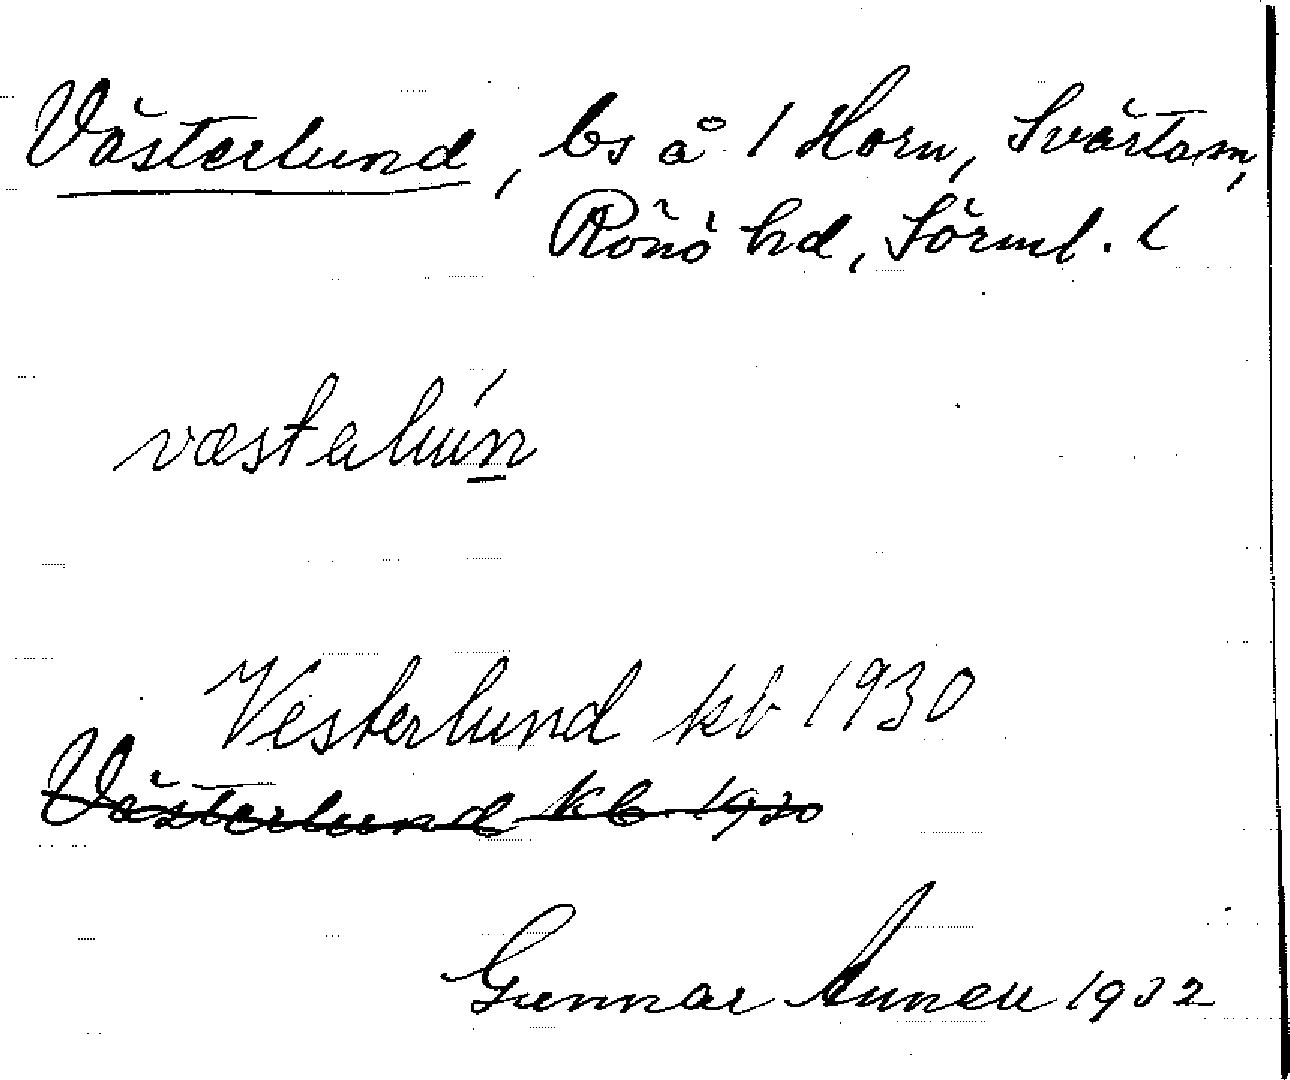 Västerlund, bs å 1 Horn, Svärtam,
Rönö hd, Sörml. l
væstalún
Vesterlund kb 1930
Västerlund kb 1930
Gunnar 1932